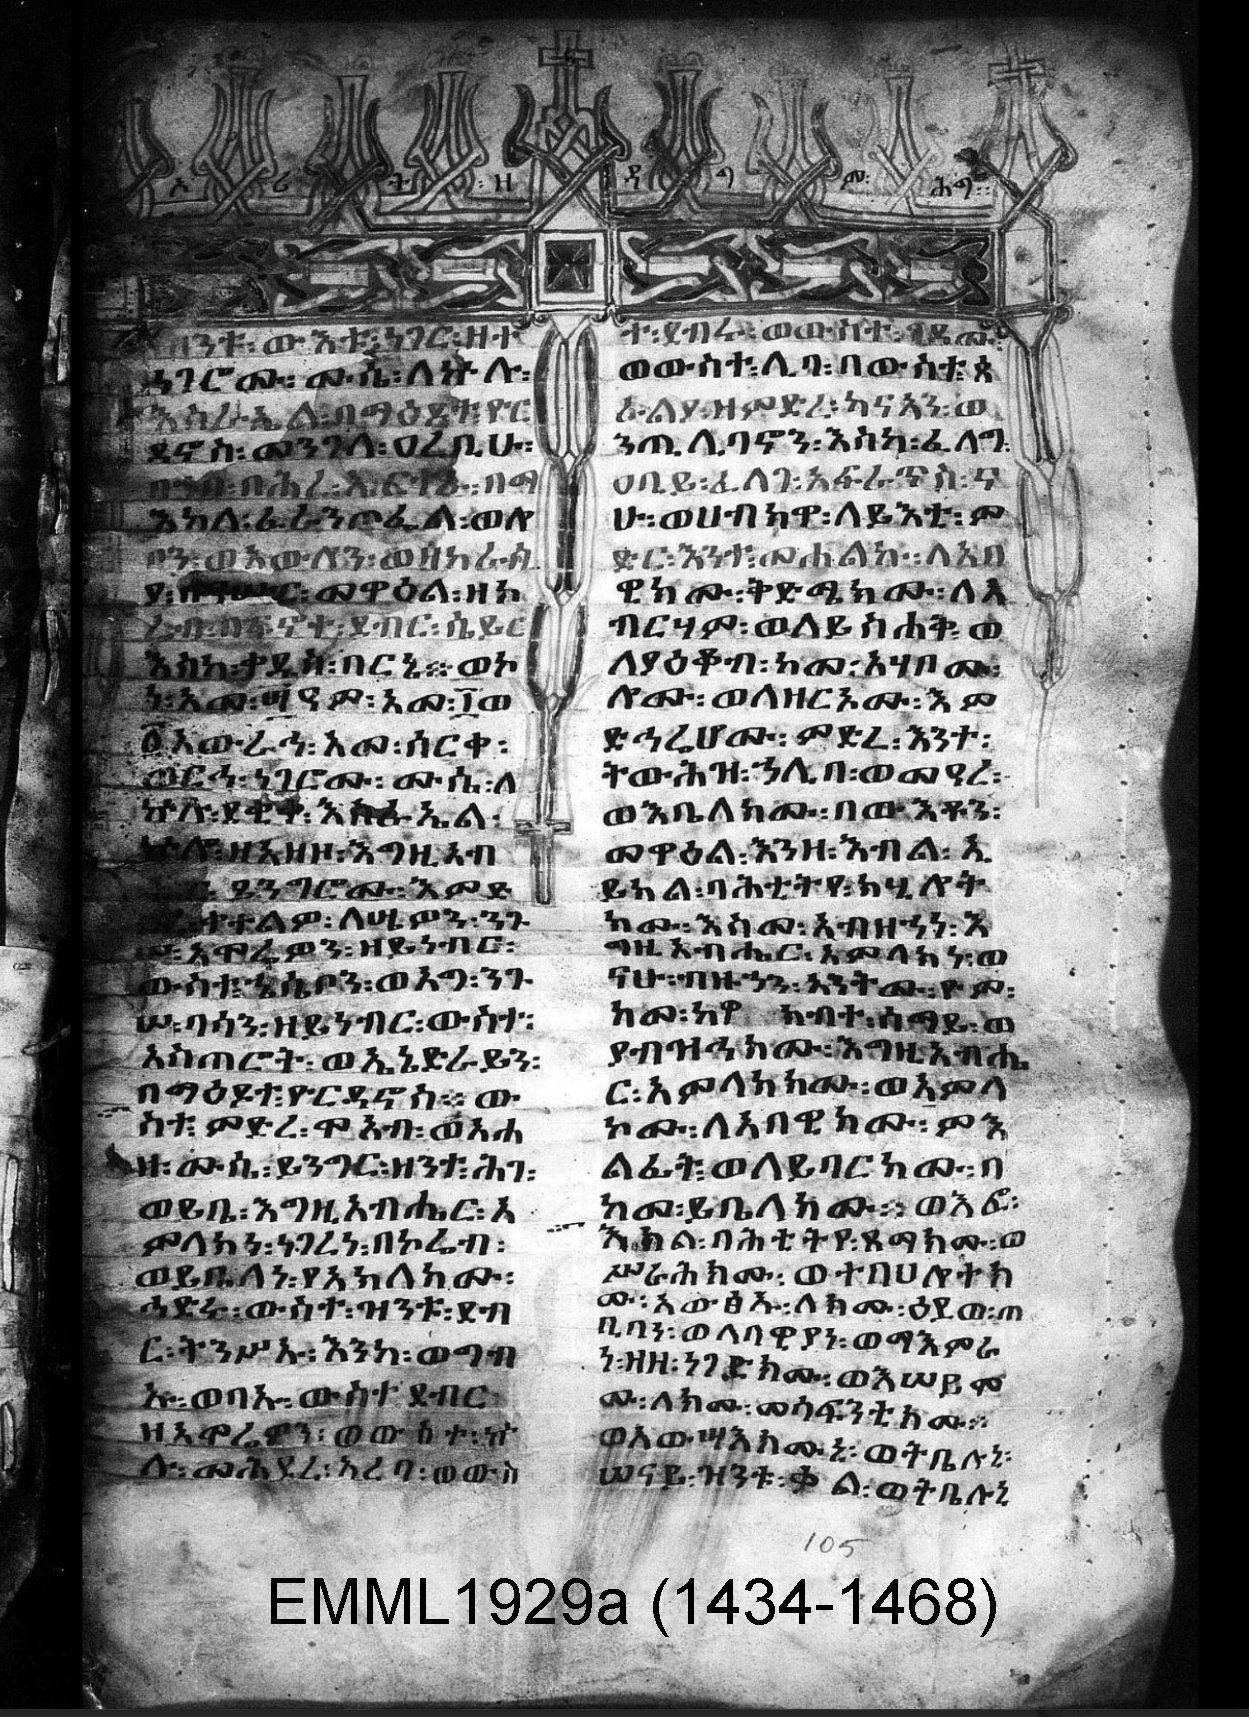 ኦሪት፡ዘዳግም፡ሕግ፡፡
ዝንቱ፡ውእቱ፡ነገር፡ዘተ
ናገሮሙ፡ሙሴ፡ለኵሉ፡
እስራኤል፡በማዕዶተ፡ዮር
ዳኖስ፡መንገለ፡ዐረቢሁ፡
በኀበ፡በሕረ፡ኤርትራ፡በማ
እከለ፡ፋራንጦፌል፡ወሎ
ቦን፡ወአውሎን፡ወዘከራሲ
ያ፡ መዋዕል፡ዘኮ
ሬብ፡በፍኖተ፡ደብር፡ሴይር
እስከ፡ቃዴስ፡በርኔ፡፡ወኮ
ነ፡አመ፡፵ዓም፡አመ፡፲ወ
፩አውራኅ፡አመ፡ሰርቀ፡
ወርኅ፡ነገሮሙ፡ሙሴ፡ለ
ኵሉ፡ደቂቀ፡እስራኤል፡
ኵሎ፡ዘአዘዞ፡እግዚአብ
ይንግሮሙ፡እምድ
ተተልዎ፡ለሴዎን፡ንጉ
ሠ፡አሞሬዎን፡ዘይነብር፡
ውስተ፡ሔሴቦን፡ወአግ፡ንጉ
ሠ፡ባሳን፡ዘይነብር፡ውስተ፡
አስጠሮት፡ወኤኔድራይን፡
በማዕዶተ፡ዮርዳኖስ፡፡ው
ስተ፡ምድረ፡ሞአብ፡ወአኀ
ዘ፡ሙሴ፡ይንግር፡ዘንተ፡ሕገ፡
ወይቤ፡እግዚአብሔር፡አ
ምላክነ፡ነገረነ፡በኮሬብ፡
ወይቤለነ፡የአክለክሙ፡
ኀድሩ፡ውስተ፡ዝንቱ፡ደብ
ር፡ትንሥኡ፡እንከ፡ወግብ
ኡ፡ወባኡ፡ውስተ ደብር
ዘአሞሬዎን፡ወውስተ፡ኵ
ሉ፡መሕደረ፡አረባ፡ወውስ
ተ፡ደብሩ፡ወውስተ፡ገዳሙ፡
ወውስተ፡ሊባ፡ባውስቱ፡ጰ
ራልያ፡ዘምድረ፡ከናአን፡ወ
ንጢሊባኖን፡እስከ፡ፈለግ፡
ዐቢይ፡ፈለገ፡አፍራጥስ፡ና
ሁ፡ወሀብክዋ፡ለይእቲ፡ም
ድር፡እንተ፡መሐልኩ፡ለአበ
ዊክሙ፡ቅድሜክሙ፡ለአ
ብርሃም፡ወለይስሐቅ፡ወ
ለያዕቆብ፡ከመ፡አሃቦሙ፡
ሎሙ፡ወለዘርኦሙ፡እም
ድኅሬሆሙ፡ምድረ፡እንተ፡
ትውሕዝ፡ኀሊበ፡ወመዓረ፡
ወእቤለክሙ፡በውእቶን፡
መዋዕል፡እንዘ፡እብል፡ኢ
ይክል፡ባሕቲትየ፡ክሂሎት
ክሙ፡እስመ፡አብዘኀነ፡እ
ግዚአብሔር፡አምላክነ፡ወ
ናሁ፡ብዙኃን፡አንትሙ፡ዮም፡
ከመ፡ከዋክብተ፡ሰማይ፡ወ
ያብዝኅክሙ፡እግዚአብሔ
ር፡አምላክክሙ፡ወአምላ
ኮሙ፡ለአበዊክሙ፡ምእ
ልፊት፡ወለይባርክሙ፡በ
ከመ፡ይቤለክሙ፡፡ወእፎ፡
እክል፡ባሕቲትየ፡ጻማክሙ፡ወ
ሥራሕክሙ፡ወተበሀሎተክ
ሙ፡አውፅኡ፡ለክሙ፡ዕደወ፡ጠ
ቢባን፡ወለባዊያነ፡ወማእምራ
ነ፡ዘዘ፡ነገድክሙ፡ወእሠይሞ
ሙ፡ለክሙ፡መሳፍንቲክሙ፡፡
ወአውሣእክሙኒ፡ወትቤሉኒ፡
ሠናይ፡ዝንቱ፡ቃል፡ወትቤሉኒ
105
EMML1929a (1434-1468)